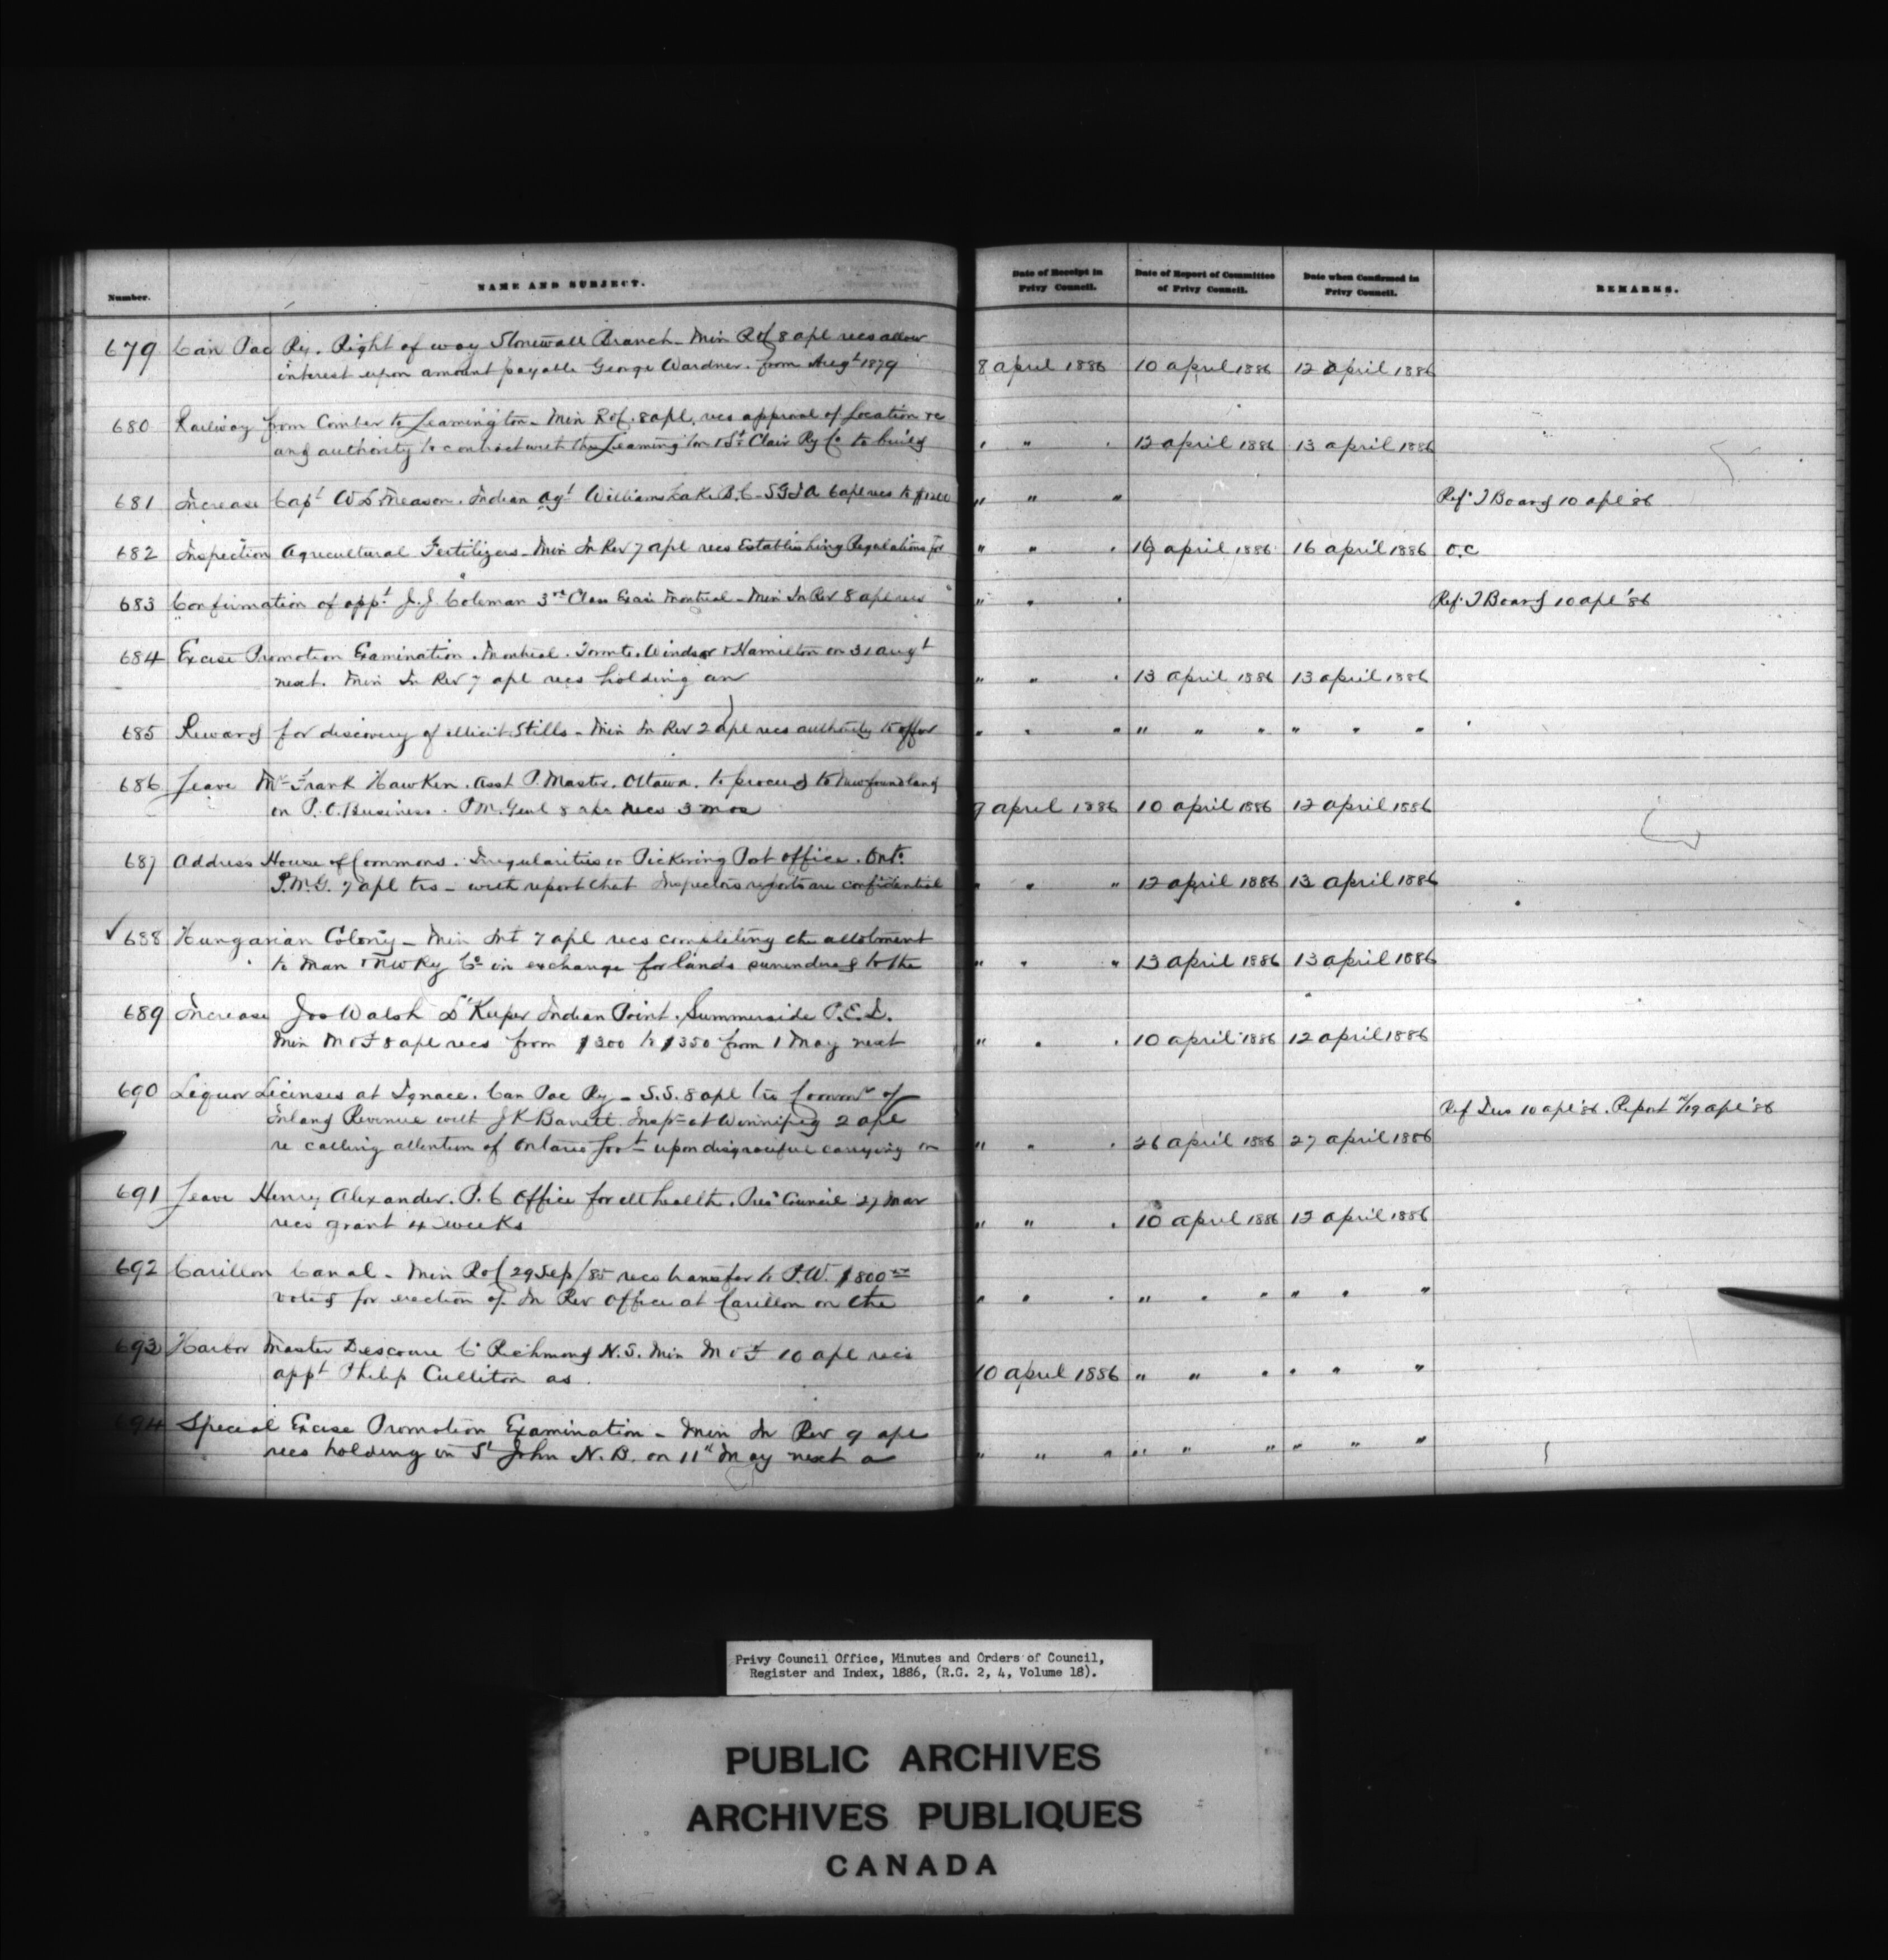 Number.
NAME AND SUBJECT.
Date of Receipt in Privy Council.
Date of Report of Committee of Privy Council.
Date when Confirmed in Privy Council.
REMARKS.
679 Can Pac Ry. Right of way Stonewall Branch - Min R&C 8 apl recs allow
interest upon amount payable George Wardner. from Augt 1879 8 april 1886 10 april 1886 12 april 1886
680 Railway from Comber to Leamington - Min R&C. 8 apl. recs approval of Location re
and authority to contract with the Leamington & St Clair Ry Co to build " " " 12 april 1886 13 april 1886
681 Increase Capt W L Meason. Indian Agt Williams Lake B.C - SGIA 6 apl recs to $1200 " " " Ref T Board 10 apl '86
682 Inspection Agricultural Fertilizers - Min In Rev 7 apl recs Establishing Regulations for " " " 16 april 1886 16 april 1886 O.C
683 Confirmation of appt J.J. Coleman 3rd Class Excise Montreal - Min In Rev 8 apl recs " " " Ref T Board 10 apl '86
684 Excise Promotion Examination. Montreal. Toronto. Windsor & Hamilton on 31 augt
next. Min In Rev 7 apl recs holding an " " " 13 april 1886 13 april 1886
685 Reward for discovery of illicit Stills - Min In Rev 2 apl recs authority to offer " " " " " " " " "
686 Leave Mr Frank Hawken. Asst P. Master. Ottawa. to proceed to Newfoundland
on P.O. Business. P.M. Genl 8 apl recs 3 mos 9 april 1886 10 april 1886 12 april 1886
687 Address House of Commons. Irregularities in Pickering Post office. Ont.
P.M.G. 7 apl trs - with report that Inspectors reports are confidential " " " 12 april 1886 13 april 1886
✓ 688 Hungarian Colony - Min Int 7 apl recs completing the allotment
to Man & NW Ry Co in exchange for lands surrendered to the " " " 13 april 1886 13 april 1886
689 Increase Jos Walsh Lt Keeper Indian Point. Summerside P.E.I.
Min M & F 8 apl recs from $300 to $350 from 1 May next " " " 10 april 1886 12 april 1886
690 Liquor Licenses at Ignace. Can Pac Ry - S.S. 8 apl trs Commr of
Inland Revenue with J K Barrett Inspr at Winnipeg 2 apl
re calling attention of Ontario Govt upon disgraceful carrying on " " " 26 april 1886 27 april 1886 Ref Jus 10 apl '86. Report 19 apl '86
691 Leave Henry Alexander. P.C Office for ill health. Pres Council 27 Mar
recs grant 4 weeks " " " 10 april 1886 12 april 1886
692 Carillon Canal - Min R&C 29 Sep/85 recs transfer to P.W. $800
voted for erection of In Rev Office at Carillon on the " " " " " " " " "
693 Harbor Master Descouse Co Richmond N.S. Min M & F 10 apl recs
appt Philip Culliton as. 10 april 1886 " " " " " "
694 Special Excise Promotion Examination - Min In Rev 9 apl
recs holding in St John N.B. on 11th May next a " " " " " " " " "
Privy Council Office, Minutes and Orders of Council,
Register and Index, 1886, (R.G. 2, 4, Volume 18).
PUBLIC ARCHIVES
ARCHIVES PUBLIQUES
CANADA